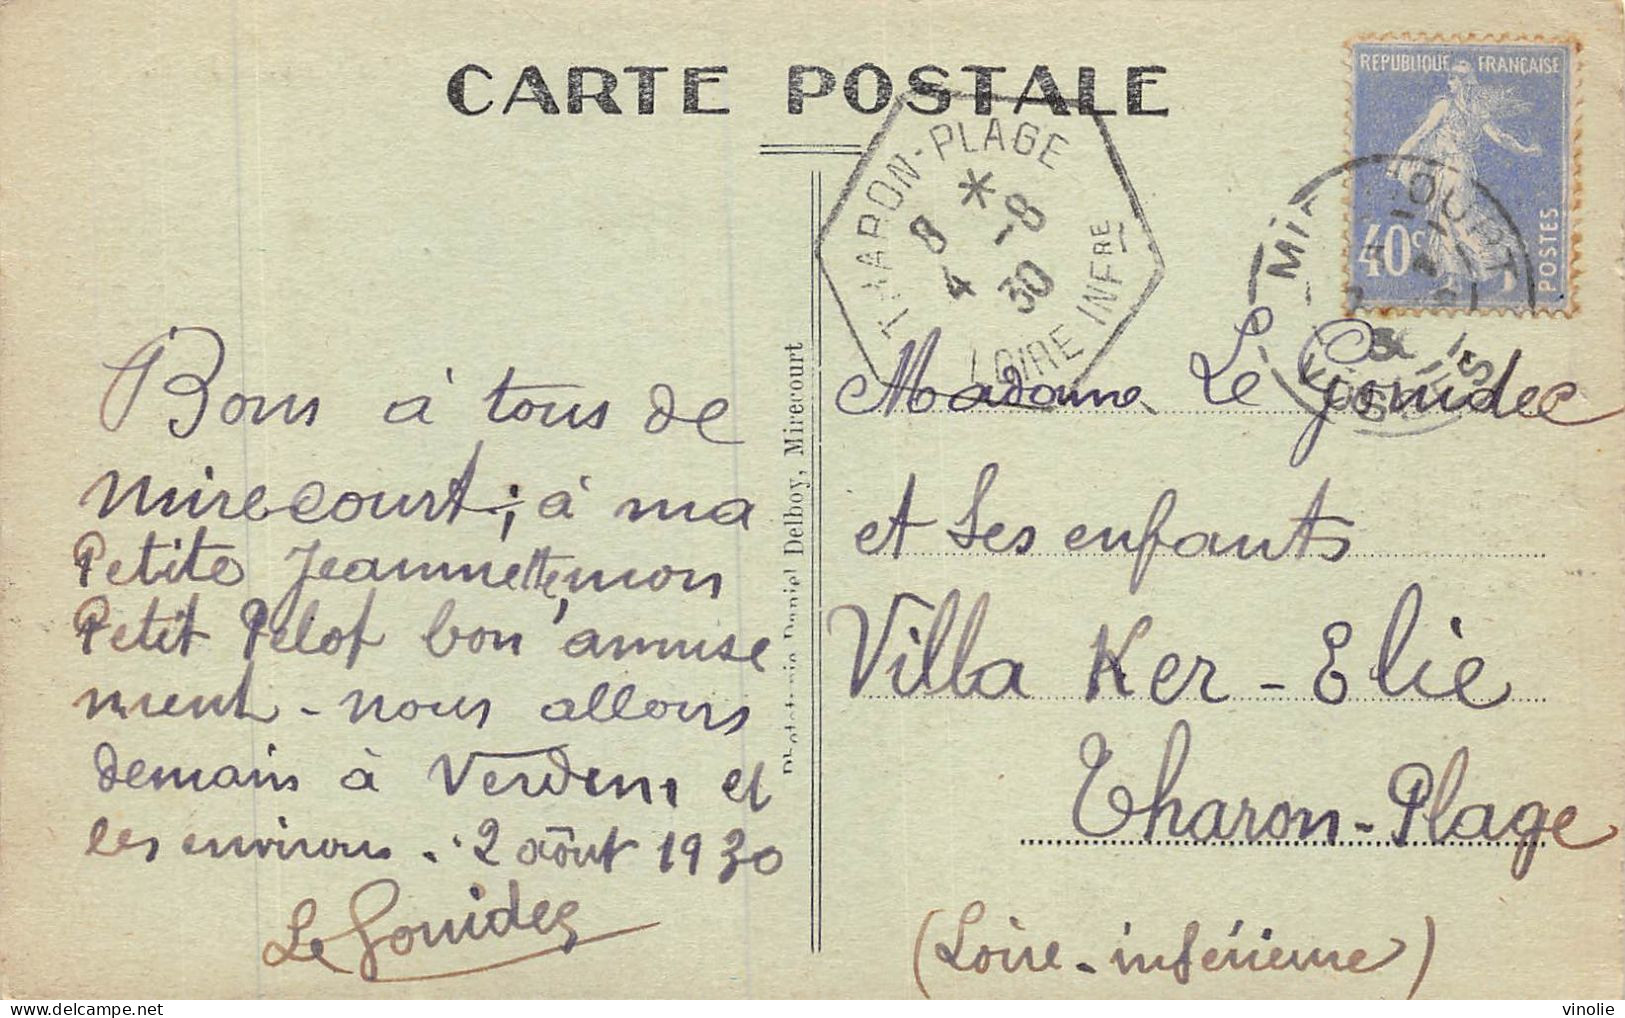 CARTE POSTALE
REPUBLIQUE FRANÇAISE
40c
POSTES
THARON-PLAGE
8 * 4 -8
30
LOIRE INFRE
VOSGES
Bons à tous de
mirecourt, à ma
Petite Jeannette, mon
Petit Pelot bon amuse
ment - nous allons
demain à Verdun et
les environs. 2 août 1930
Le Gonidec
Daniel Delboy, Mirecourt
Madame Le Gonidec
et Ses enfants
Villa Ker-Elie
Tharon-Plage
(Loire-inférieure)
vinolie